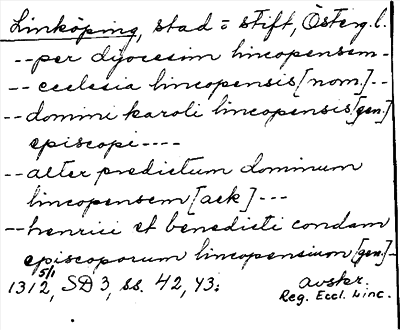 Linköping, stad o stift, Österg. l.
-- per dyocesim lincopensem --
-- ecclesia lincopensis [nom.] --
-- domini karoli lincopensis [gen.]
episcopi ----
-- alter predictum dominum
lincopensem [ack] ---
-- henrici et benedicti condam
episcoporum lincopensium [gen.] --
1312 5/1, SD 3, ss. 42, 43; avskr.
Reg. Eccl. Linc.